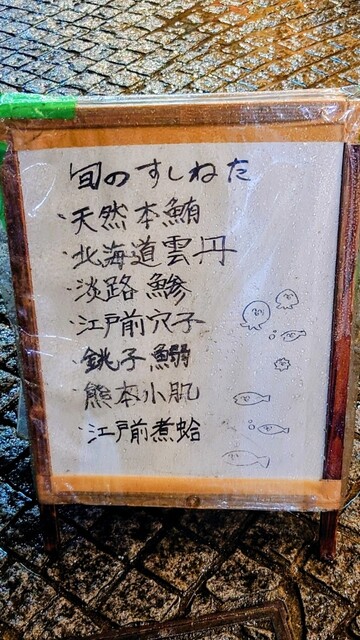 旬のすしねた
・天然本鮪
・北海道雲丹
・淡路鰺
・江戸前穴子
・銚子鰯
・熊本小肌
・江戸前煮蛤